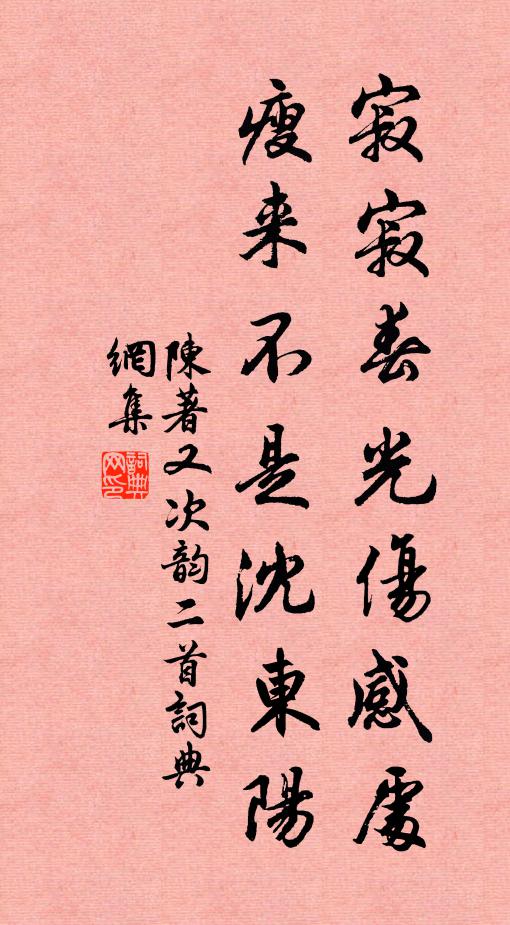 寂寂春光傷感處
瘦来不是沈東陽
陳著又次韵二首詞典
網集
詞典
网印